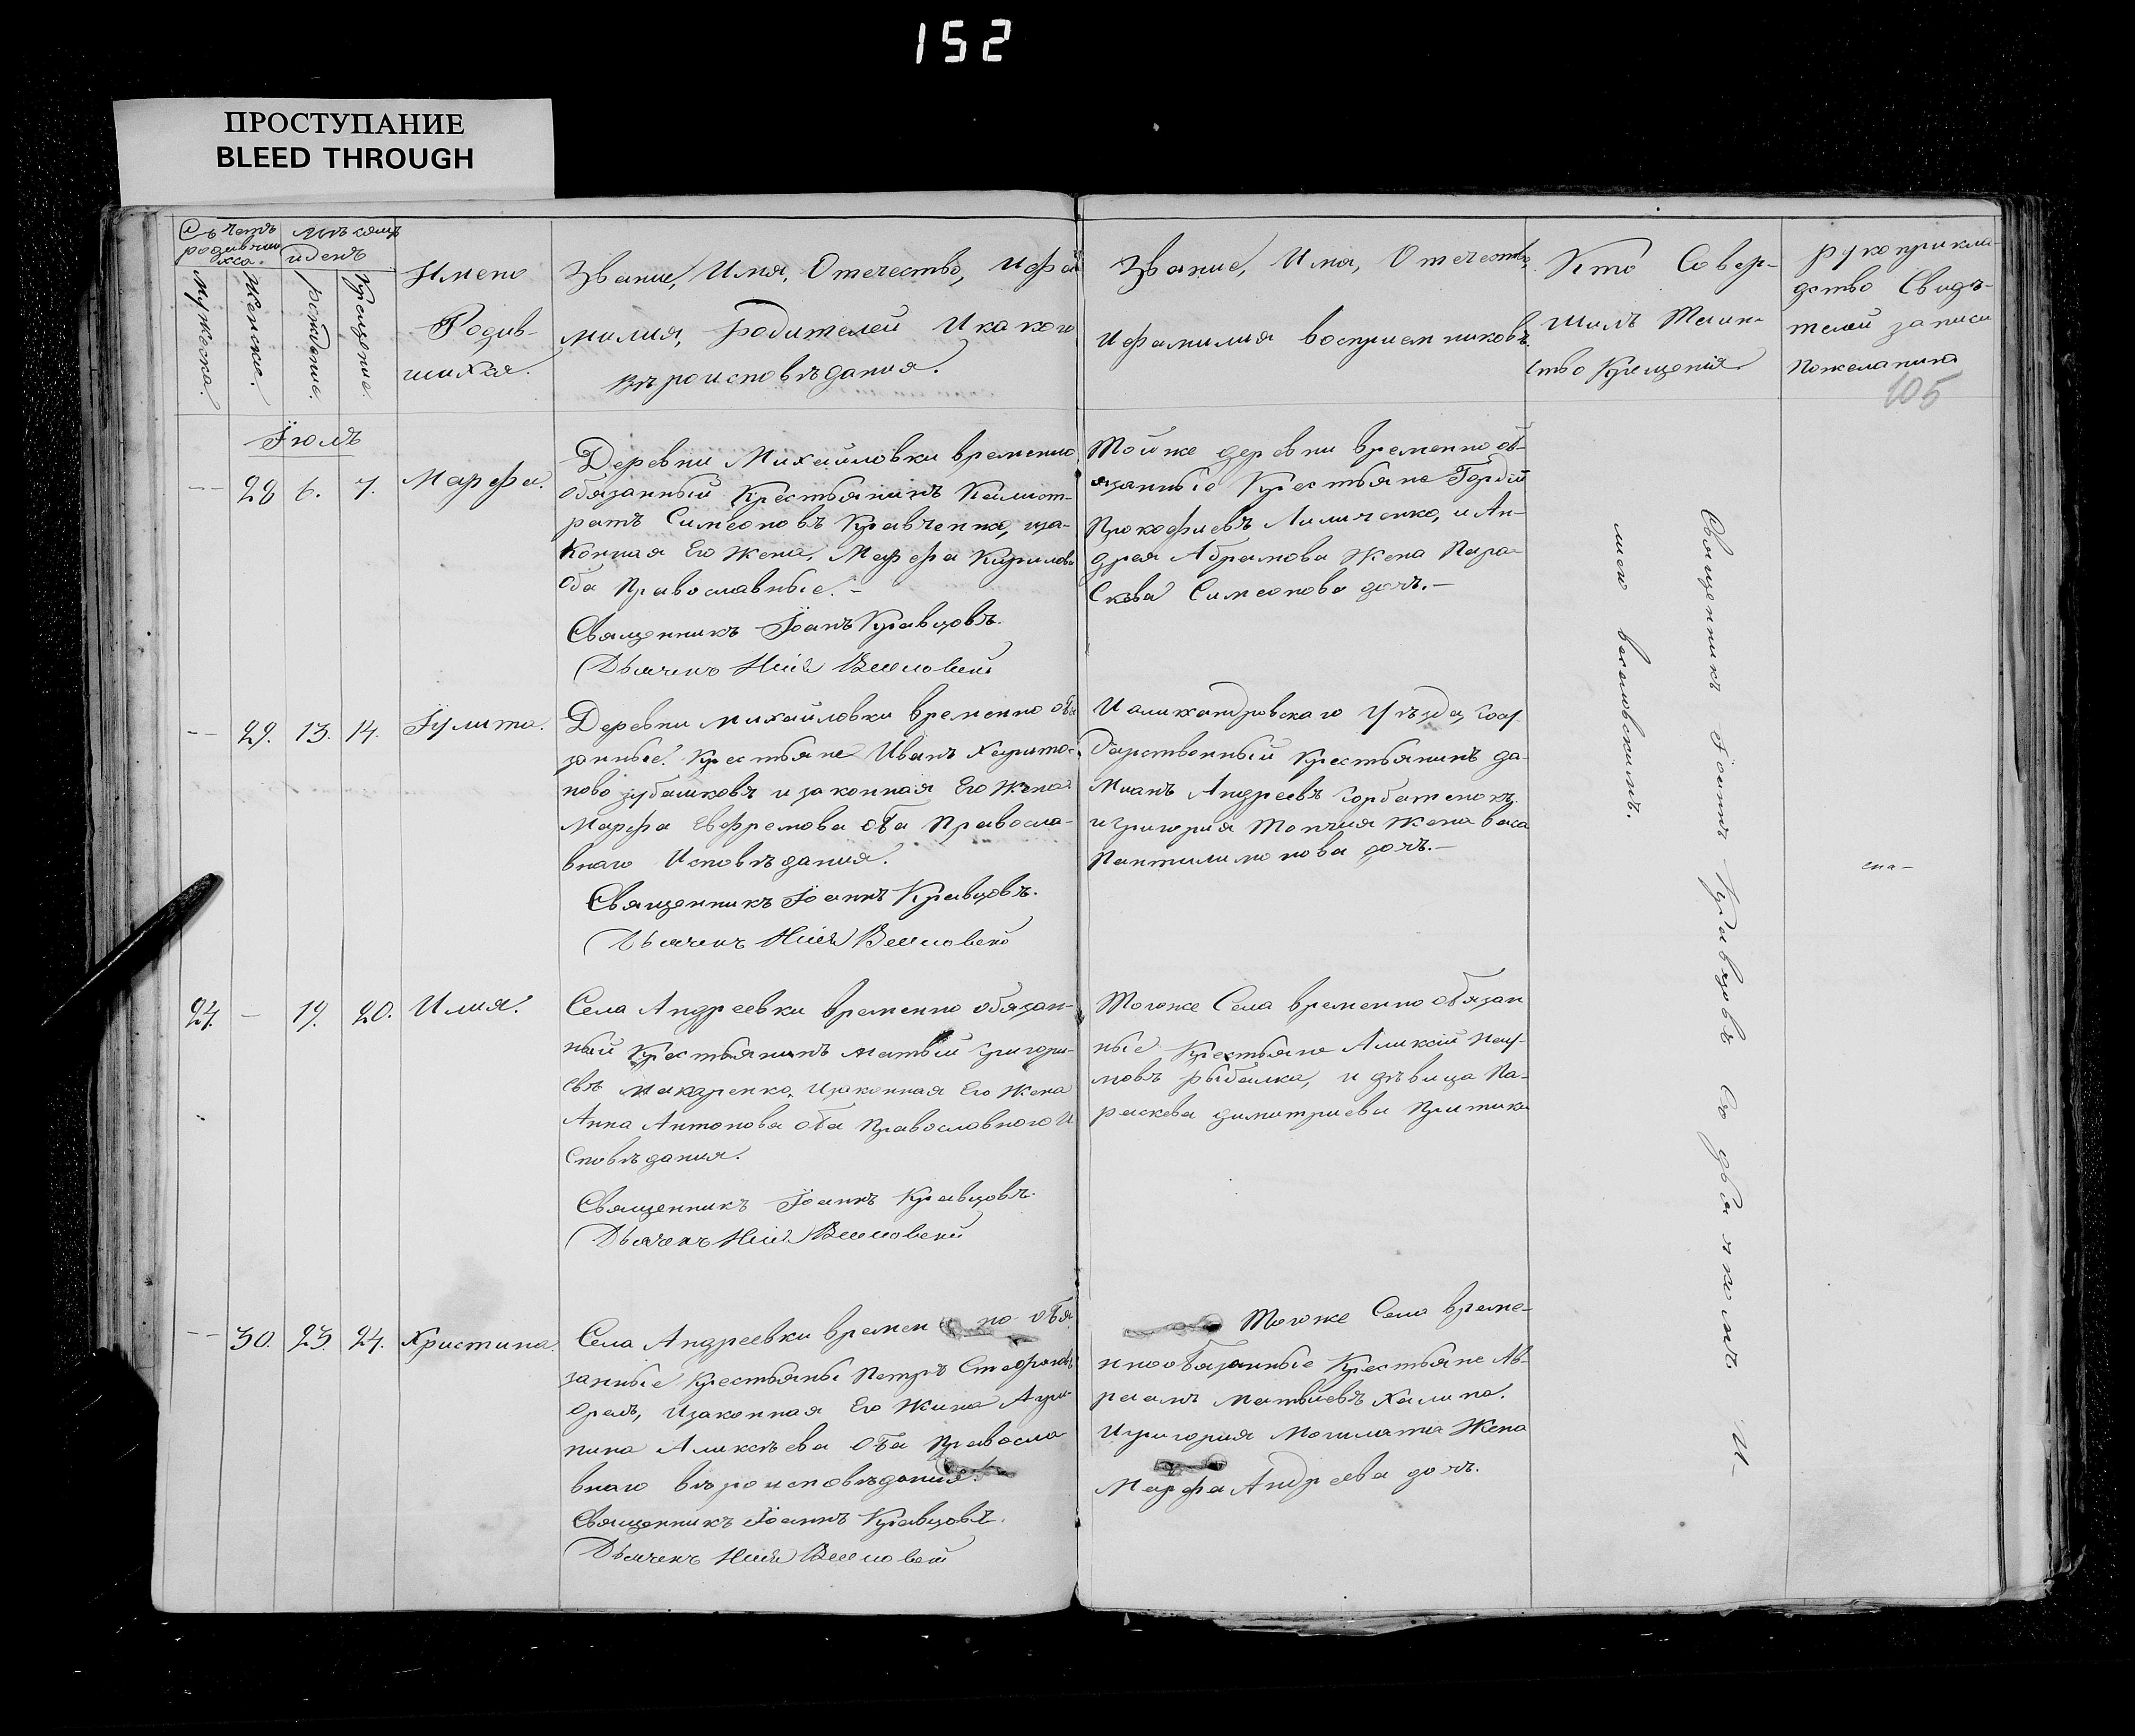 152
ПРОСТУПАНИЕ
BLEED THROUGH
Счетъ родившихся.
Мѣсяцъ и день
Мужеска.
Женска.
рождение.
Крещение.
Имено
Родив-
шихся.
Звание, Имя, Отечество, и фа
милия, Родителей И какого
вѣроисповѣдания.
Звание, Имя, Отечество,
и фамилия восприемниковъ.
Кто Совер-
шилъ Таин-
ство Крещения
рукоприкла-
дство Свидѣ-
телей записи
Пожеланию
105
Іюль
28 6. 7. Марфа.
Деревни Михайловки временно
обязанный Крестьянинъ Калист-
ратъ Симеоновъ Кравченко, иза-
конная Его жена, Марфа Кирилова
оба Православные.-
Священникъ Іоанъ Кравцовъ.
Дьячекъ
Тойже деревни временно об-
язанные Крестьяне Гордій
Прокофиевъ Лиличенко, и Ан-
дрея Абрамова жена Пара-
скева Симеонова дочь.-
29. 13. 14. Іулита.
Деревни Михайловки временно обя
занные Крестьяне Иванъ Харито-
ново зубашковъ и законная Его жена
Марфа Евфремова оба Правосла-
внаго Исповѣдания.
Священникъ Іоаннъ Кравцовъ.
Дьячекъ
Иалихандровскаго Уѣзда, Госу-
дарственный Крестьянинъ да-
миянъ Андреевъ Горбатенокъ
и Григория Топчия жена васа
Пантилимонова дочь.-
24. - 19. 20. Илия.
Села Андреевки временно обязан-
ный Крестьянинъ Матвій Григори-
евъ Макаренко, изаконная Его жена
Анна Антонова оба Православного И
сповѣдания.
Священникъ Іоаннъ Кравцовъ.
Дьячекъ
Тогоже Села временно обязан
ные Крестьяне Аликсій Нау-
мовъ рыбалка, и дѣвица Па-
раскева димитриева Притика
30. 23. 24. Христина.
Села Андреевки времен но обя
занные Крестьяны Петръ Стефановъ
Орелъ, изаконная Его Жина Агри-
пина Аликсѣева оба Правосла
внаго вѣроисповѣдания.
Священникъ Іоаннъ Кравцовъ.
Дьячекъ
Тогоже Села време-
ннообязанные Крестьяне Ав-
раамъ Матвиевъ Халипа.
Играгория Могилата Жена
Марфа Андреева дочь.
Священникъ Іоаннъ Кравцовъ Со дьячкомъ И-
лиею веселовскимъ.